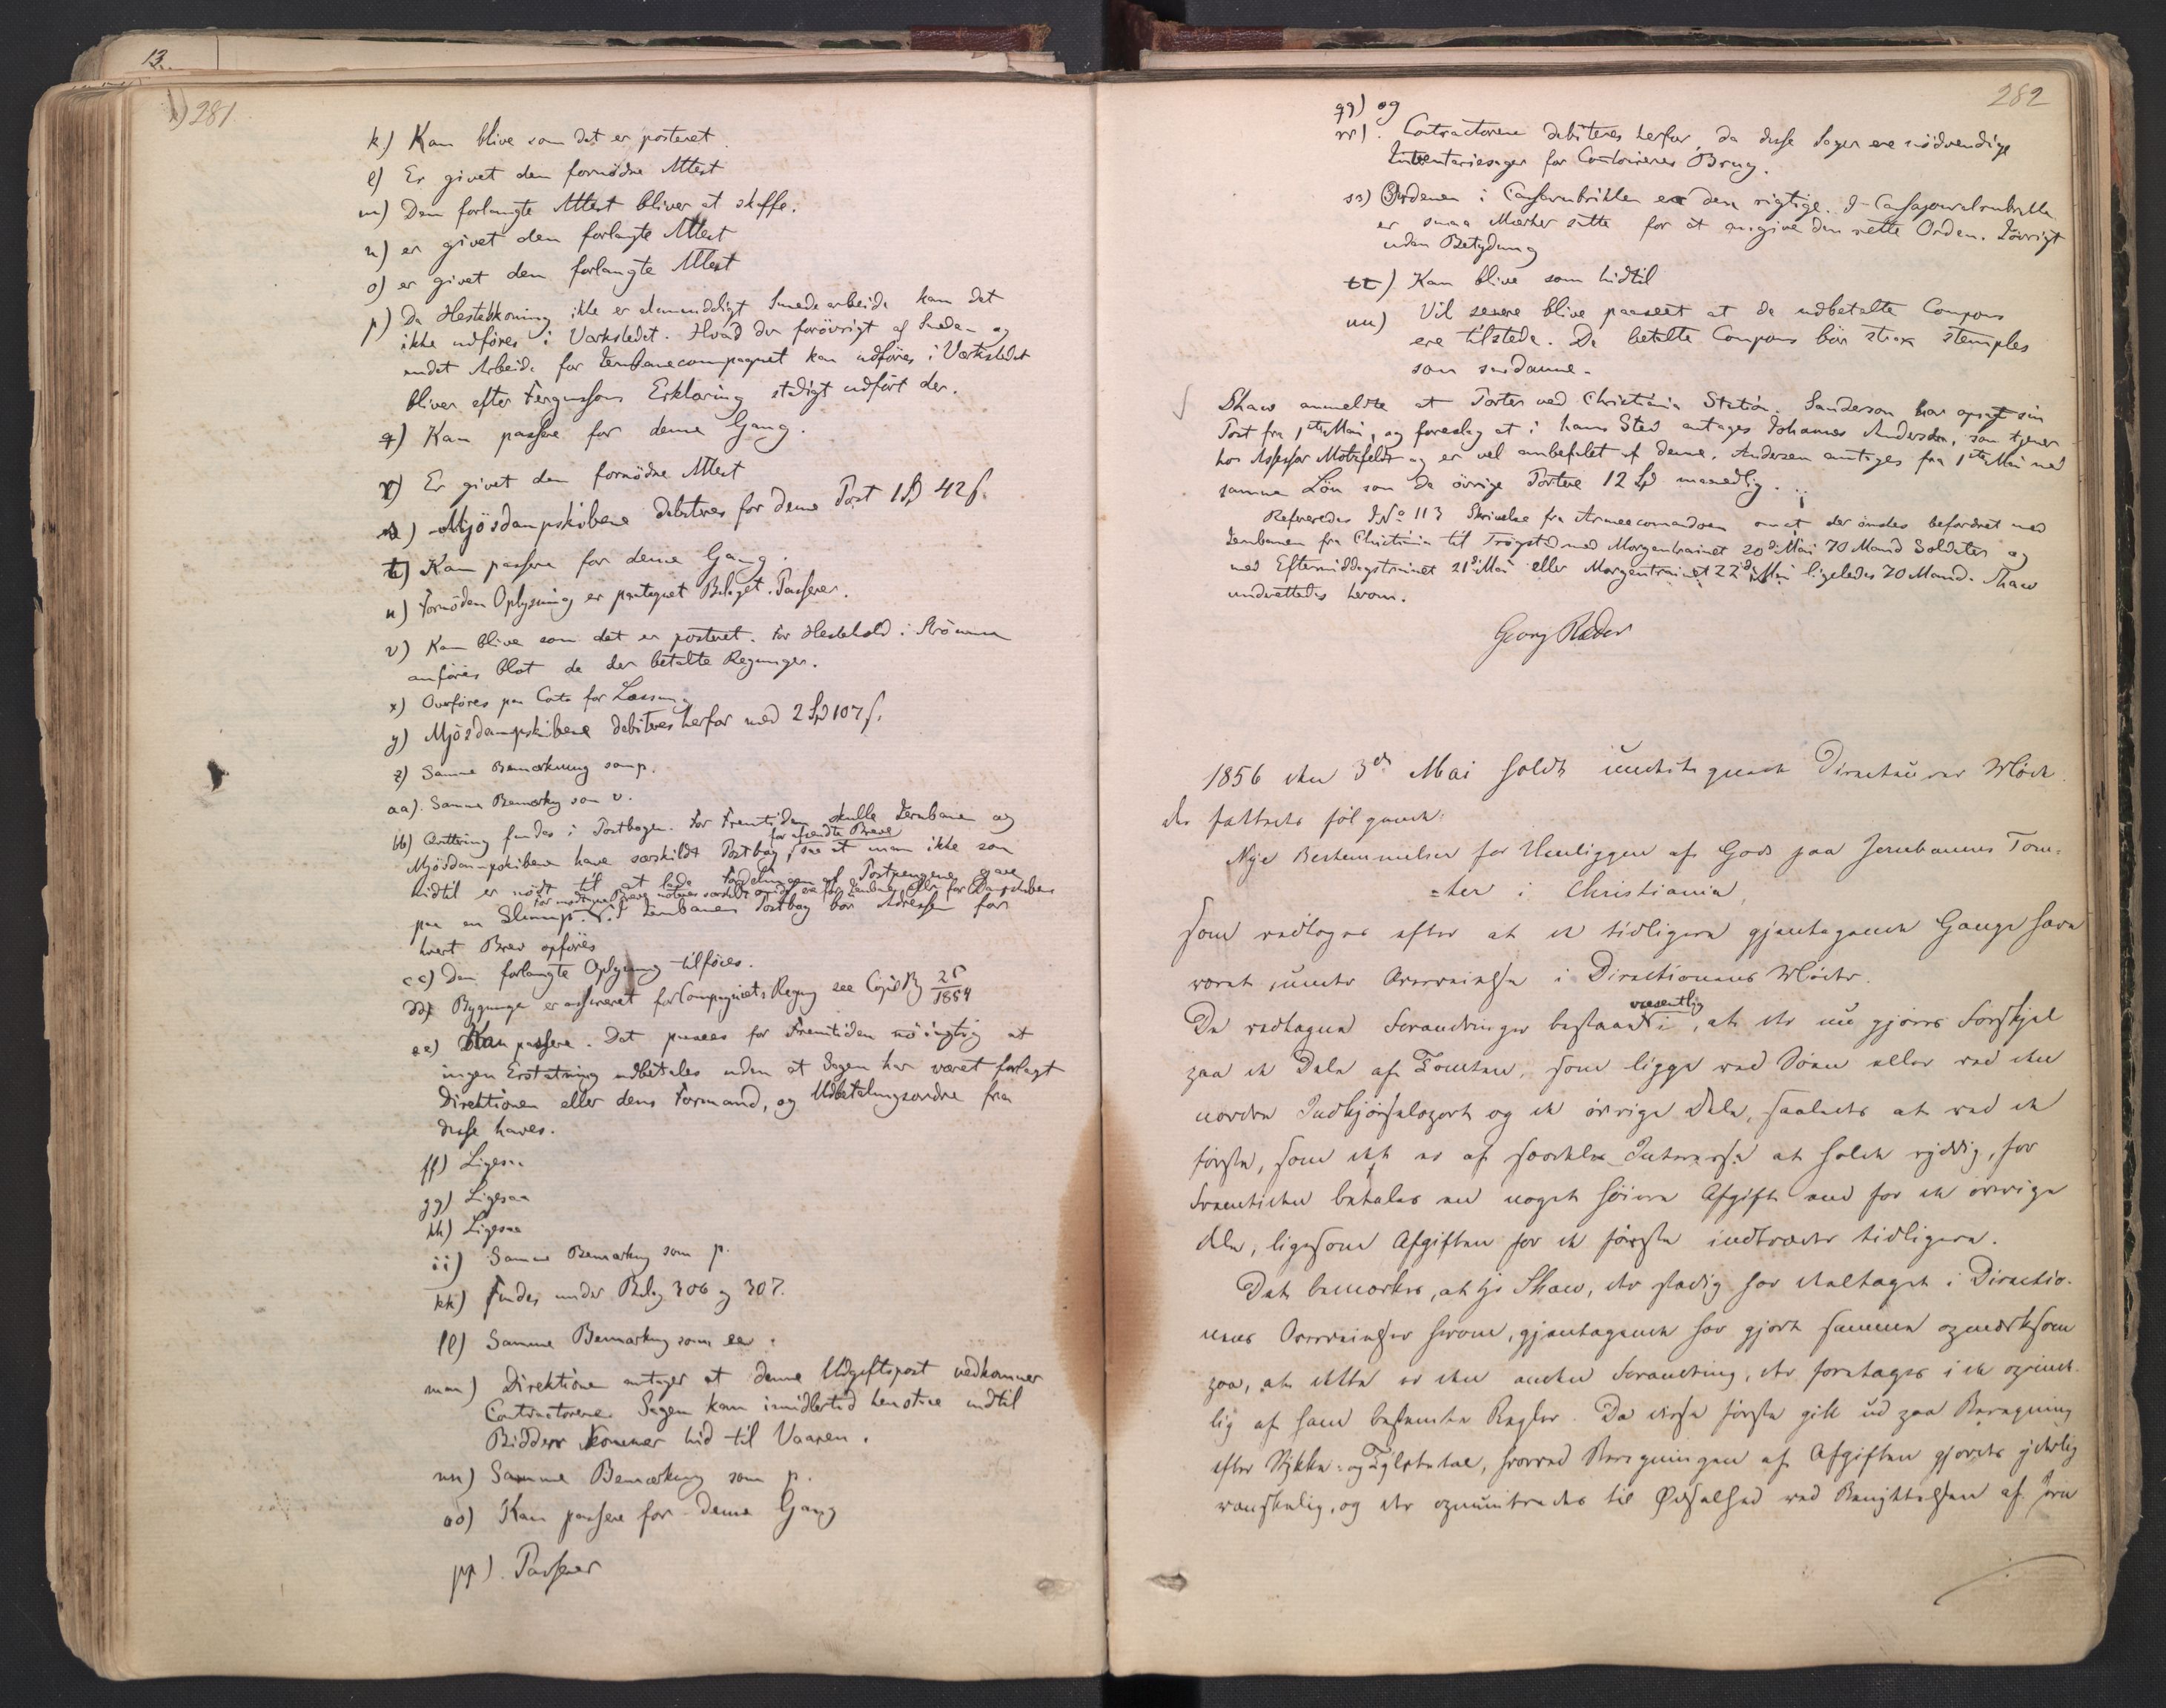 13.
281
k.) Kan blive som det er posteret.
l) Er givet den fornødne Attest
m) Den forlangte Attest bliver at skaffe.
n) er givet den forlangte Attest
o) er givet den forlangte Attest
p) Da Hesteskoning ikke er almindeligt Smedearbeide kan det
ikke udføres i Værkstedet. Hvad der forövrigt af Smede- og
andet Arbeide for Jernbanecompagniet kan udföres i Værkstedet
bliver efter Fergussons Erklæring stadigt udfört der.
q) Kan passere for denne Gang.
r) Er givet den fornødne Attest
s) Mjösdampskibene debiteres for denne Post 1 Spd 42 ſ.
t) Kan passere for denne Gang.
u) Fornöden Oplysning er paategnet Bilaget. Passerer.
v) Kan blive som det er posteret. For Hestehold i Strömmen
anföres blot de der betalte Regninger.
x) Overföres paa Conto for Læsning
y) Mjösdampskibene debiteres herfor med 2 Spd 107 ſ.
z) Samme Bemærkning som p.
aa). Samme Bemærkng som v.
bb) Qvittering findes i Postbogen. For Fremtiden skulle Jernbanen og
for afsendte Breve
Mjösdampskibene have særskildt Postbog, saa at man ikke som
hidtil er nödt til at lade Fordelingen af Postpengene gaae
For modtagne Breve noteres særskilt om de ere for Jernbanen eller for Dampskibene
paa en Slump. I Jernbanens Postbog bör Adressen for
hvert Brev opföres
cc) Den forlangte Oplysning tilföies.
dd) Bygninger er assureret for Compagniets Regng see Copie Bg 25/1854
ee) Kan passere. Det paasees for Fremtiden nöiagtig at
ingen Erstatning udbetales uden at Sagen har været forlagt
Direktionen eller dens Formand, og Udbetalingsordre fra
disse haves.
ff) Ligesaa
gg) Ligesaa
hh) Ligesaa
ii) Samme Bemærkng som p.
kk) findes under Bilag 306 og 307.
ll) Samme Bemærkng som ee.
mm) Direktionen antager at denne Udgiftspost vedkommer
Contractorene. Sagen kan imidlertid henstaae indtil
Bidder kommer hid til Vaaren.
nn) Samme Bemærkning som p.
oo) Kan passere for denne Gang
pp). Passerer
282
qq) og
rr). Contractorene debiteres herfor, da disse Sager ere nödvendige
Inventariesager for Contoirernes Brug.
ss) Ordenen i Cassarubrikken er den rigtige. I Cassajournalrubrikken
er smaa Mærker satte for at angive den rette Orden. Iövrigt
uden Betydning
tt) Kan blive som hidtil
uu) Vil senere blive paaseet at de udbetalte Coupons
ere tilstede. De betalte Coupons bör strax stemples
som saadanne.
Shaw anmeldte at Porter ved Christiania Station. Sanderson har opsagt sin
Post fra 1ste Mai, og foreslog at i hans Sted antages Johannes Andersen, som tjener
hos Assessor Motzfeldt og er vel anbefalet af denne. Andersen antages fra 1ste Mai med
samme Lön som de övrige Portere 12 Spd maanedlig.
Refereredes J.No 113 Skrivelse fra Armeecomandoen om at der önskes befordret med
Jernbanen fra Christiania til Trögstad med Morgentrainet 20de Mai 70 Mand Soldater og
med Eftermiddagstrainet 21de Mai eller Morgentrainet 22de Mai ligeledes 70 Mand. Shaw
underrettedes herom.
Georg Ræder
1856 den 3de Mai holdt undertegnede Directeurer Möde.
der fattedes fölgende:
Nye Bestemmelser for Henliggen af Gods paa Jernbanens Tom=
=ter i Christiania,
som vedtoges efter at de tidligere gjentagende Gange have
været under Overveielse i Directionens Möder.
væsentlig
De vedtagne Forandringer bestaae i, at der nu gjöres Forskjel
paa de Dele af Tomten, som ligge ved Söen eller ved den
nordre Indkjörselsport og de övrige Dele, saaledes at ved de
förste, som det er af særdeles Interesse at holde ryddig, for
Fremtiden betales en noget höiere Afgift end for de övrige
dele, ligesom Afgiften for de förste indtræder tidligere.
Det bemærkes, at Hr Shaw, der stadig har deeltaget i Directio-
nens Overveielser herom, gjentagende har gjort samme opmærksom
paa, at dette er den anden Forandring, der foretages i de oprinde-
lig af ham bestemte Regler. Da disse förste gik ud paa Beregning
efter Stykke- og Tylvtetal, hvorved Beregningen af Afgiften gjordes yderlig
vanskelig, og der opmuntredes til Ødselhed ved Benyttelsen af Jern